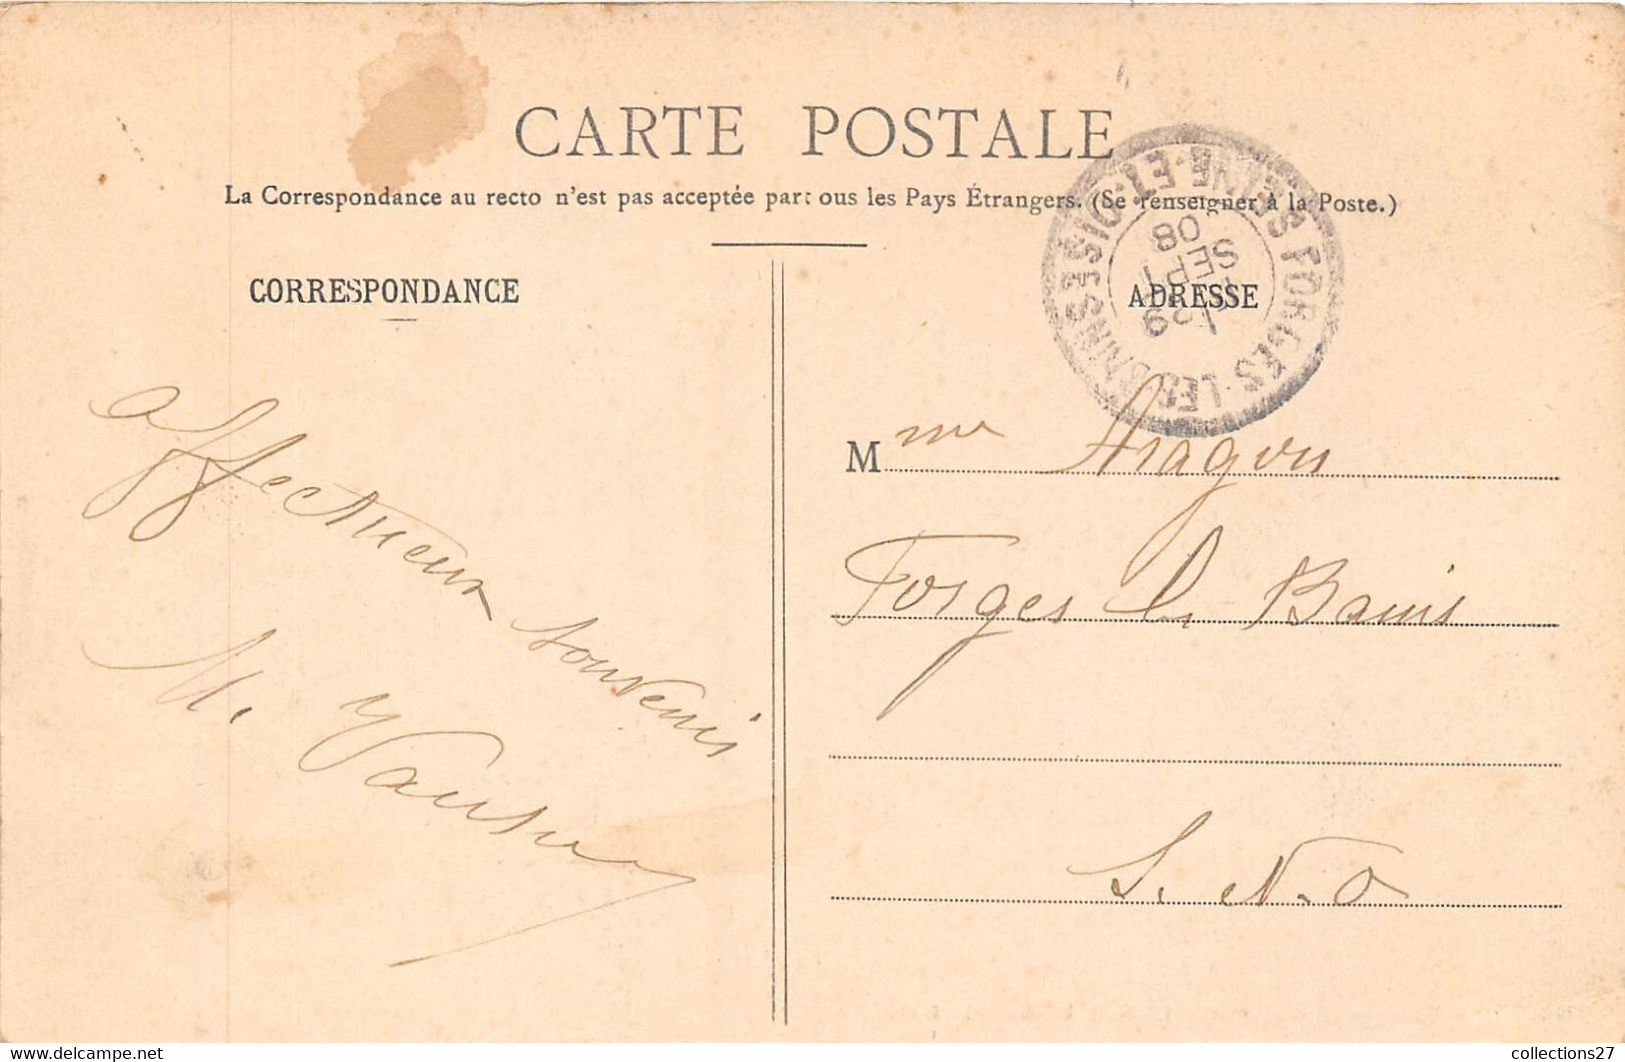 CARTE POSTALE
La Correspondance au recto n'est pas acceptée par tous les Pays Étrangers. (Se renseigner à la Poste.)
CORRESPONDANCE
affectueux souvenir
M.
ADRESSE
FORGES-LES-BAINS SEINE-ET-OISE
SEPT
08
Mme Aragon
Forges les Bains
S. et O
collections27